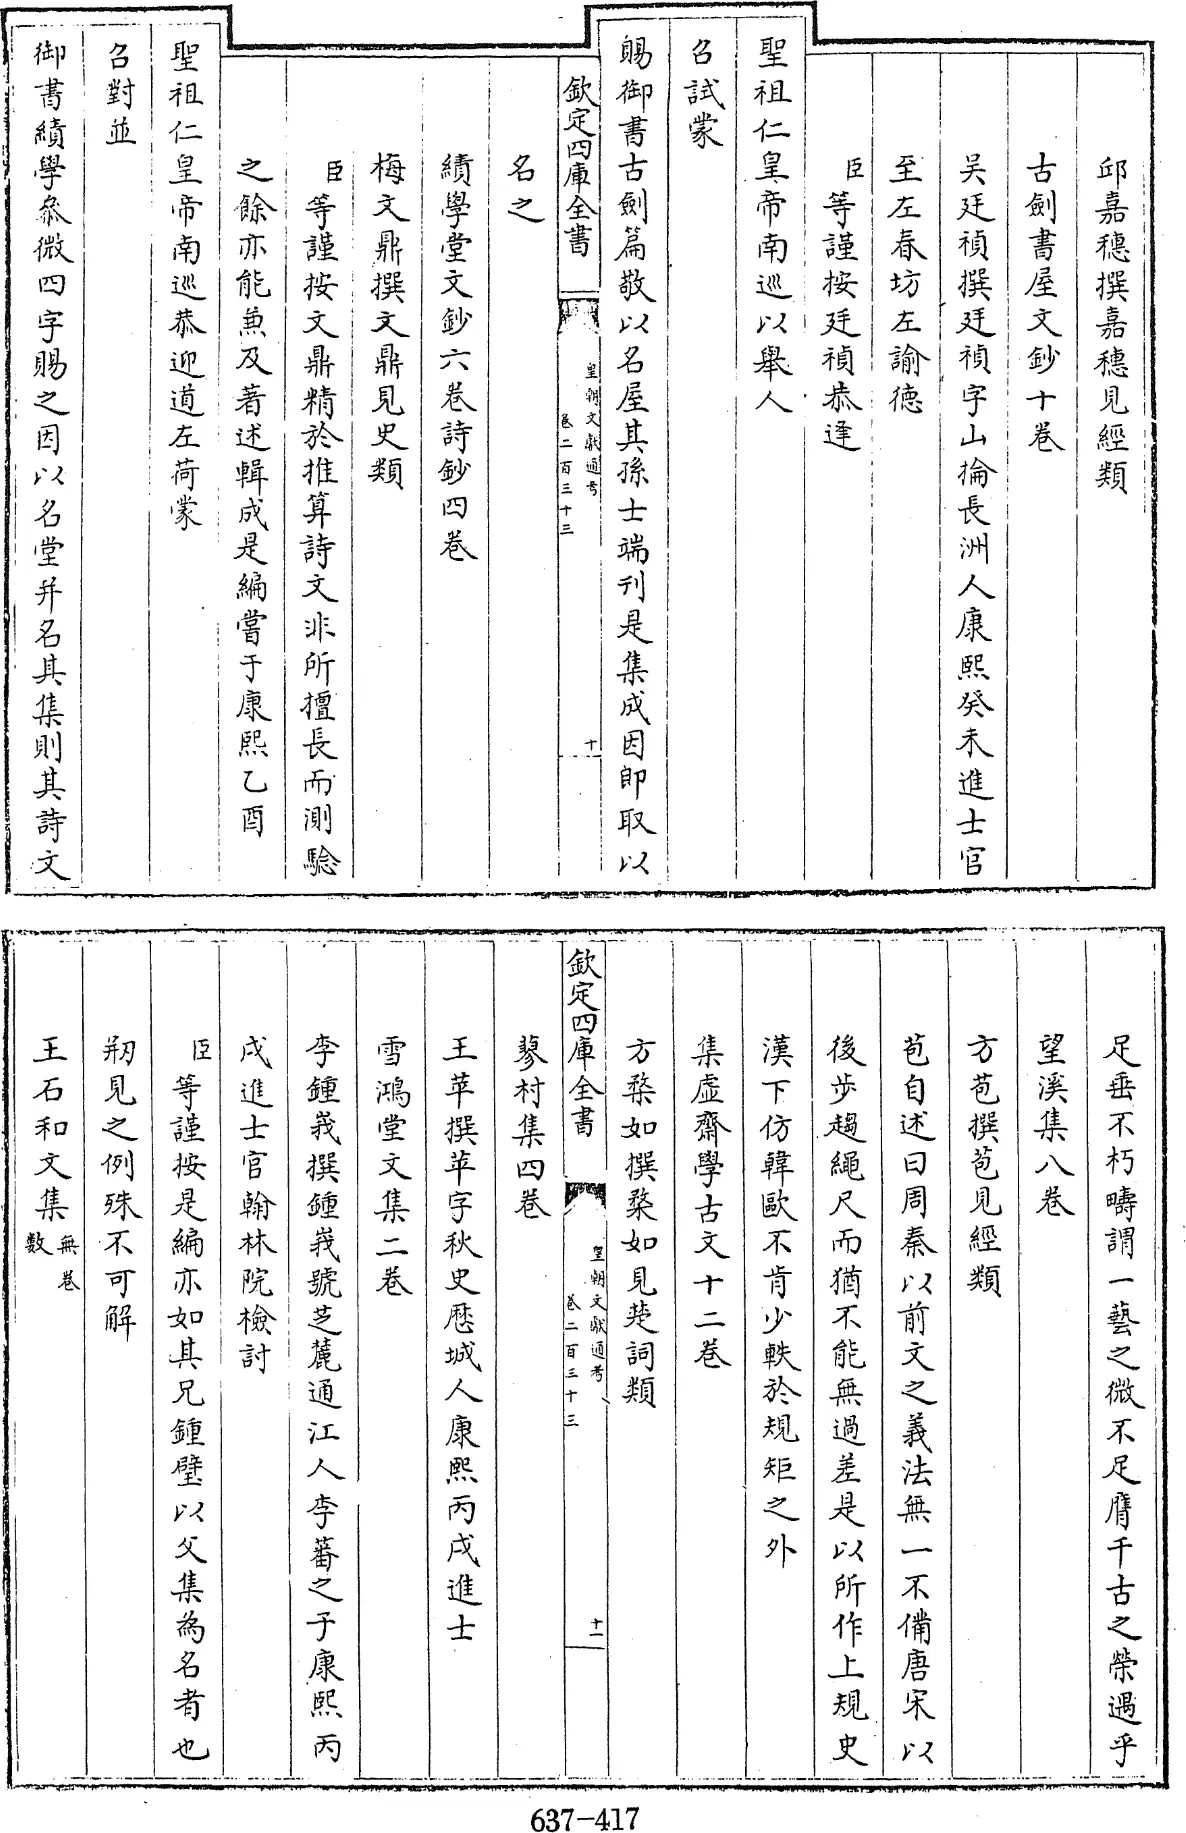 邱嘉穗撰嘉穗見經類
古劍書屋文鈔十巻
吳廷禎撰廷禎字山掄長洲人康熙癸未進士官
至左春坊左諭徳
臣等謹按廷禎恭逢
聖祖仁皇帝南巡以舉人
召試䝉
賜御書古劍篇敬以名屋其孫士端刊是集成因即取以
欽定四庫全書
皇朝文獻通考
卷二百三十三
十
名之
績學堂文鈔六巻詩鈔四巻
梅文鼎撰文鼎見史類
臣等謹按文鼎精於推算詩文非所擅長而測騐
之餘亦能兼及著述輯成是編嘗于康熙乙酉
聖祖仁皇帝南巡恭迎道左荷䝉
召對並
御書績學叅微四字賜之因以名堂并名其集則其詩文
足垂不朽疇謂一藝之微不足膺千古之榮遇乎
望溪集八巻
方苞撰苞見經類
苞自述曰周秦以前文之義法無一不備唐宋以
後步趨繩尺而猶不能無過差是以所作上規史
漢下仿韓歐不肯少軼於規矩之外
集虛齋學古文十二巻
方楘如撰楘如見楚詞類
欽定四庫全書
皇朝文獻通考
卷二百三十三
十一
蓼村集四巻
王苹撰苹字秋史歴城人康熙丙戌進士
雪鴻堂文集二巻
李鍾峩撰鍾峩號芝麓通江人李蕃之子康熙丙
戌進士官翰林院檢討
臣等謹按是編亦如其兄鍾璧以父集為名者也
刱見之例殊不可解
王石和文集無巻數
637-417